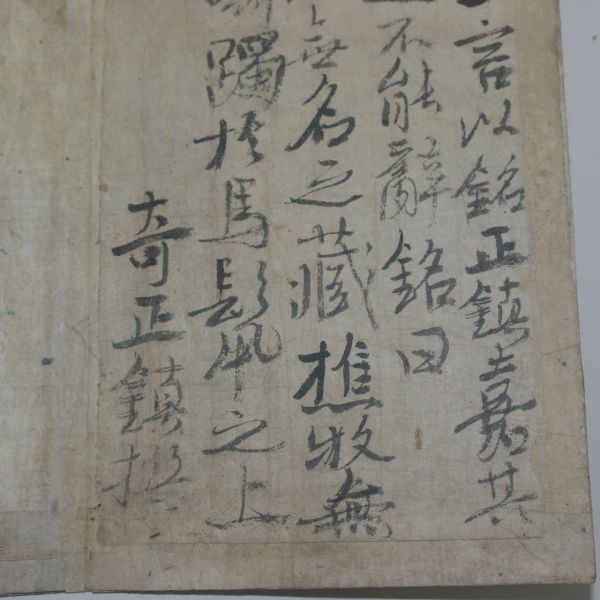 言以銘正鎮嘉其
不能辭銘曰
無名之藏樵牧無
躅於馬鬣之上
奇正鎮撰